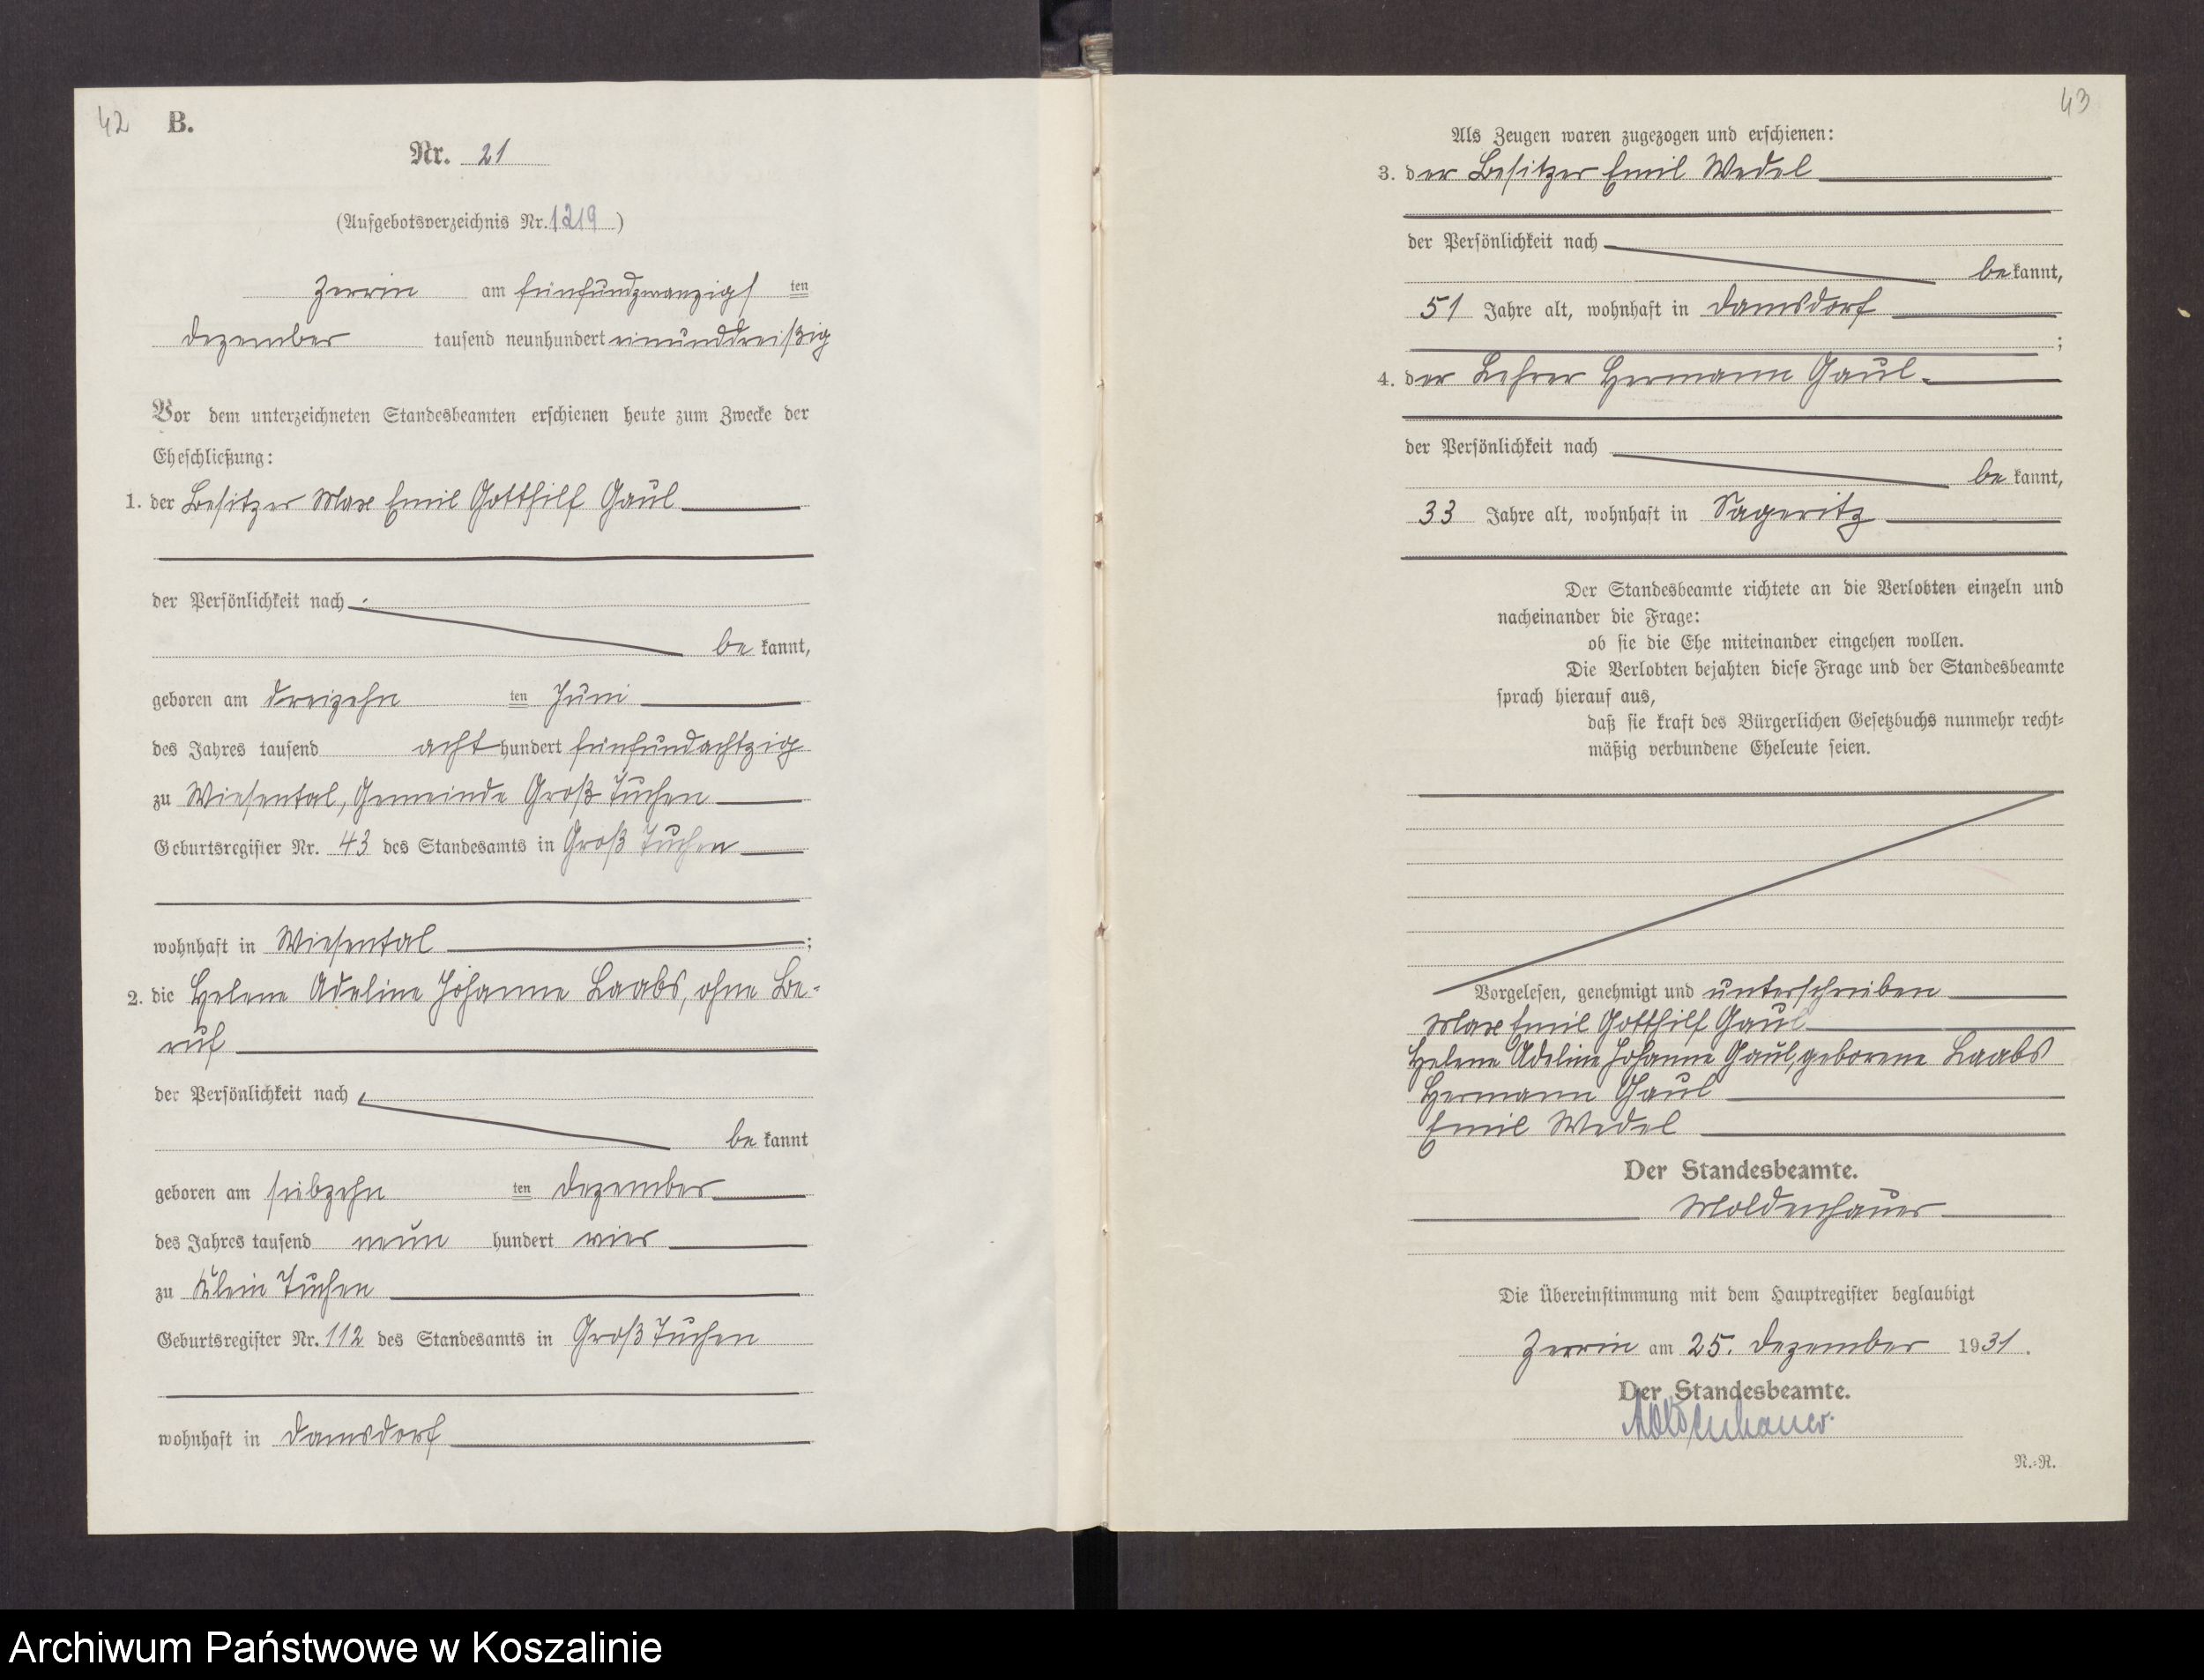 42 B.
Nr. 21
(Aufgebotsverzeichnis Nr. 1219)
Zerrin am fünfundzwanzigsten
Dezember tausend neunhundert einunddreißig
Vor dem unterzeichneten Standesbeamten erschienen heute zum Zwecke der
Eheschließung:
1. der Besitzer Max Emil Gotthilf Gaul
der Persönlichkeit nach
be kannt,
geboren am dreizehn ten Juni
des Jahres tausend acht hundert fünfundachtzig
zu Wiesental, Gemeinde Groß Tuchen
Geburtsregister Nr. 43 des Standesamts in Groß Tuchen
wohnhaft in Wiesental;
2. die Helene Adeline Johanne Laabs, ohne Be-
ruf
der Persönlichkeit nach
be kannt
geboren am siebzehn ten Dezember
des Jahres tausend neun hundert vier
zu Klein Tuchen
Geburtsregister Nr. 112 des Standesamts in Groß Tuchen
wohnhaft in Damsdorf
43
Als Zeugen waren zugezogen und erschienen:
3. der Besitzer Emil Wedel
der Persönlichkeit nach
be kannt,
51 Jahre alt, wohnhaft in Damsdorf
;
4. der Lehrer Hermann Gaul
der Persönlichkeit nach
be kannt,
33 Jahre alt, wohnhaft in Sageritz
Der Standesbeamte richtete an die Verlobten einzeln und
nacheinander die Frage:
ob sie die Ehe miteinander eingehen wollen.
Die Verlobten bejahten diese Frage und der Standesbeamte
sprach hierauf aus,
daß sie kraft des Bürgerlichen Gesetzbuchs nunmehr recht-
mäßig verbundene Eheleute seien.
Vorgelesen, genehmigt und unterschrieben
Max Emil Gotthilf Gaul
Helene Adeline Johanne Gaul, geborene Laabs
Hermann Gaul
Emil Wedel
Der Standesbeamte.
Moldenhauer
Die Übereinstimmung mit dem Hauptregister beglaubigt
Zerrin am 25. Dezember 1931.
Der Standesbeamte.
Moldenhauer.
N.-R.
Archiwum Państwowe w Koszalinie